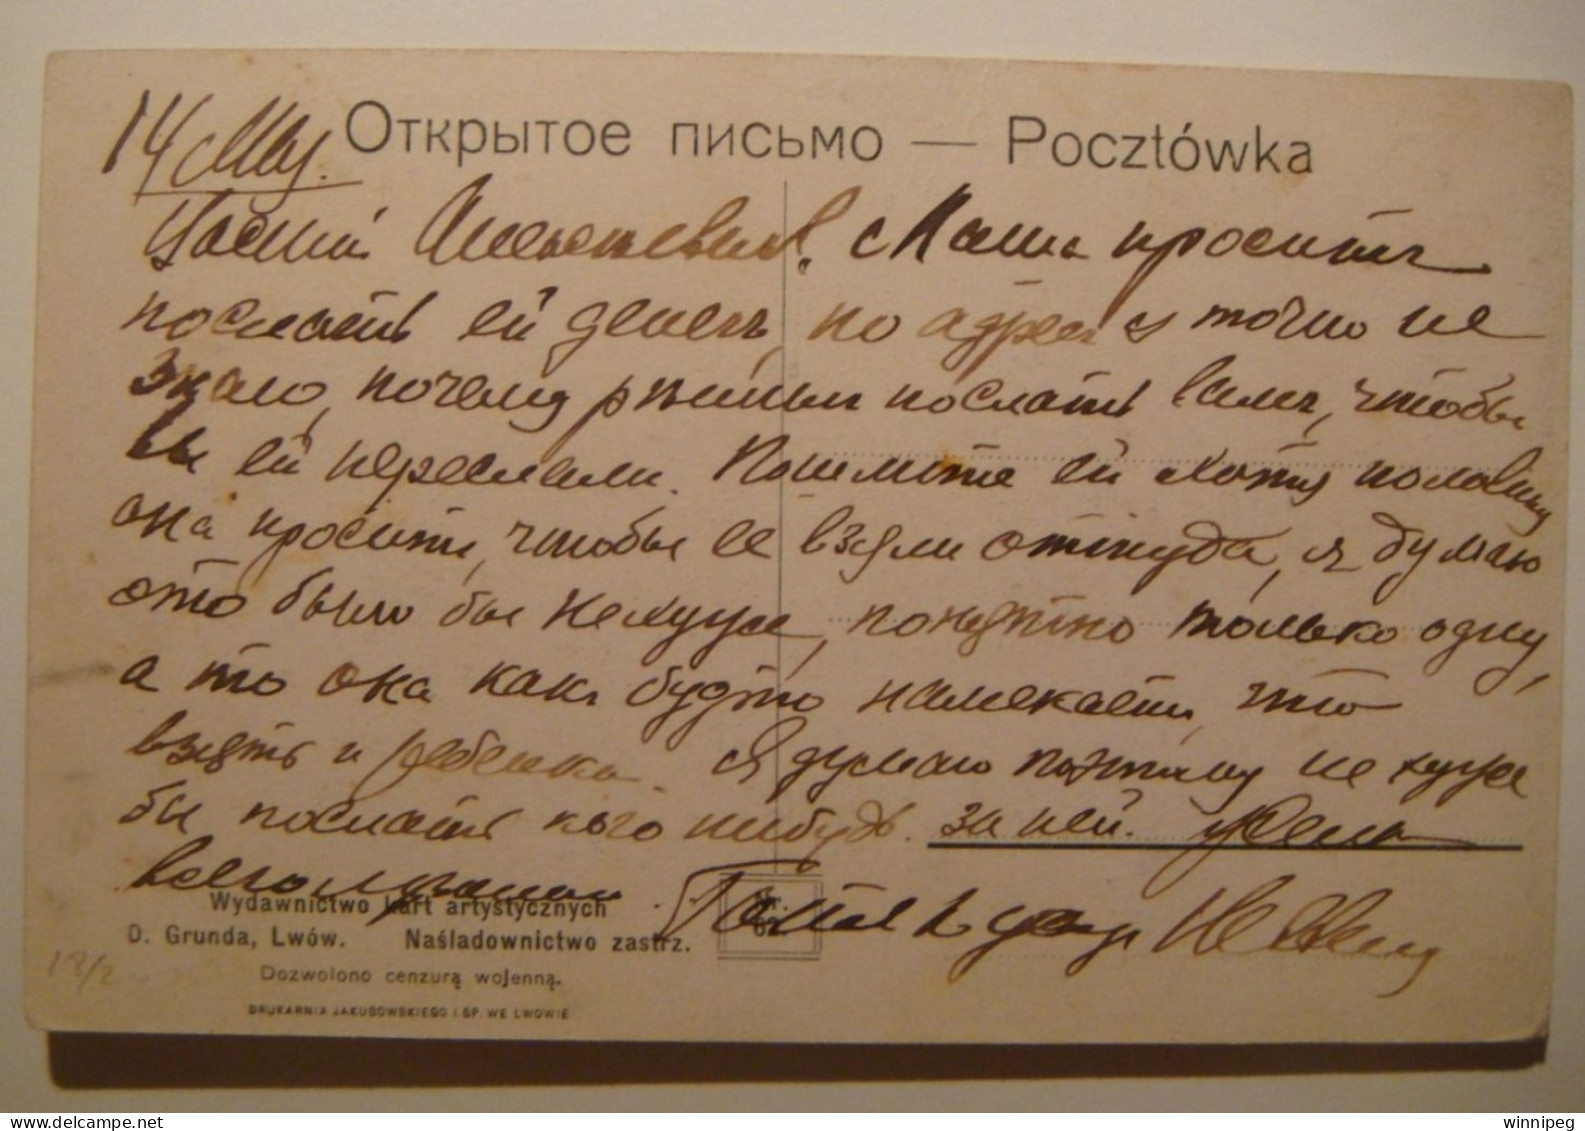 14 Мая.
Открытое письмо — Pocztówka
Маша просить
послать ей денегъ, но адрес я точно не
знаю, почему рѣшилъ послать вамъ, чтобы
вы ей переслали. Пошлите ей хотя половину
она просить, чтобы ее взяли оттуда, я думаю
это было бы не худо, понятно только одну,
а то она какъ будто намекаетъ, что
взять и ребенка. Я думаю поэтому не худо
бы послать кого нибудь за ней.
Wydawnictwo kart artystycznych
D. Grunda, Lwów. Naśladownictwo zastrz.
Dozwolono cenzurą wojenną.
DRUKARNIA JAKUBOWSKIEGO I SP. WE LWOWIE
Nr.
12/2
winnipeg
delcampe.net